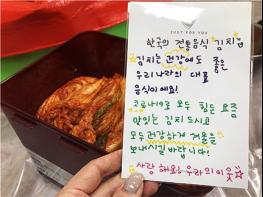 JUST FOR YOU
한국의 전통음식 김치
김치는 건강에도 좋은
우리나라의 대표
음식이에요!
코로나19로 모두 힘든 요즘
맛있는 김치 드시고
모두 건강하게 겨울을
보내시길 바랍니다!
사랑해요! 우리의 이웃